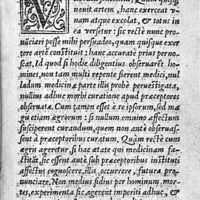 nouit artem, hanc exerceat
nam atque excolat, & totus in
ea versetur: sic rectè nunc pro
nūciari posse mihi persuadeo, quum quisque exer
cere arte constituit: hanc accuratè prius perno-
scat. Id quod si hodie diligentius obseruarēt ho-
mines, non tam multi repente fierent medici, nul
lam medicinæ partē illis probè peruestigata,
nullius adhuc morbi curatione apud præceptores
obseruata. Cum tamen esset è re ipsorum, sed ma
gis etiam ægrorum: si nullum omnino affectum
susciperent curandum, quem non antè obserua-
sent à præceptoribus curatum. Quàm rectè cum
ægris ageretur, si hac ætate id haberetur, factita-
sse sic essent autē sub præceptoribus instituti
affectus cognoscere, illis occurrere, futura pro-
nunciare. Non medius fidius per hominum, mor-
tes, experimenta sic agerent imperiti adhuc, &